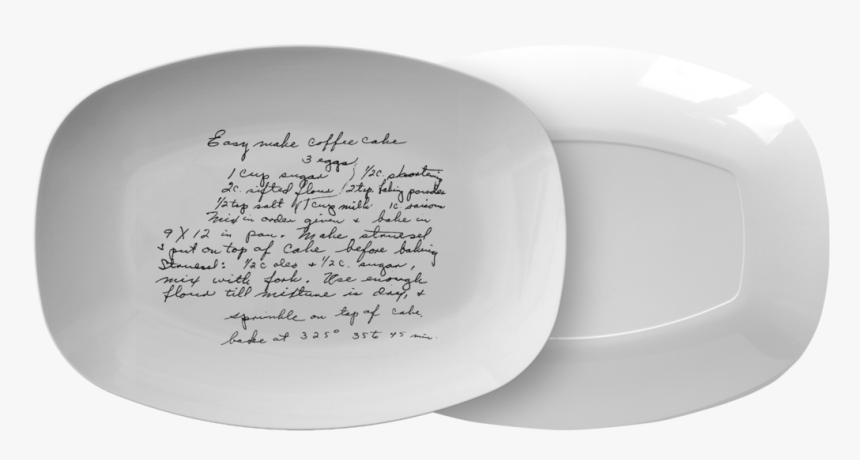 Easy make coffee cake
3 eggs
1 cup sugar / 1/2 c. shortening
2c. sifted flour / 2 tsp. baking powder
1/2 tsp salt 1 cup milk 1c raisons
Mix in order given & bake in
9 X 12 in pan. Make struesel
& put on top of cake before baking
Struesel: 1/2 c oleo + 1/2 c. sugar,
mix with fork. Use enough
flour till mixture is dry, &
sprinkle on top of cake.
bake at 325° 35 to 45 min.